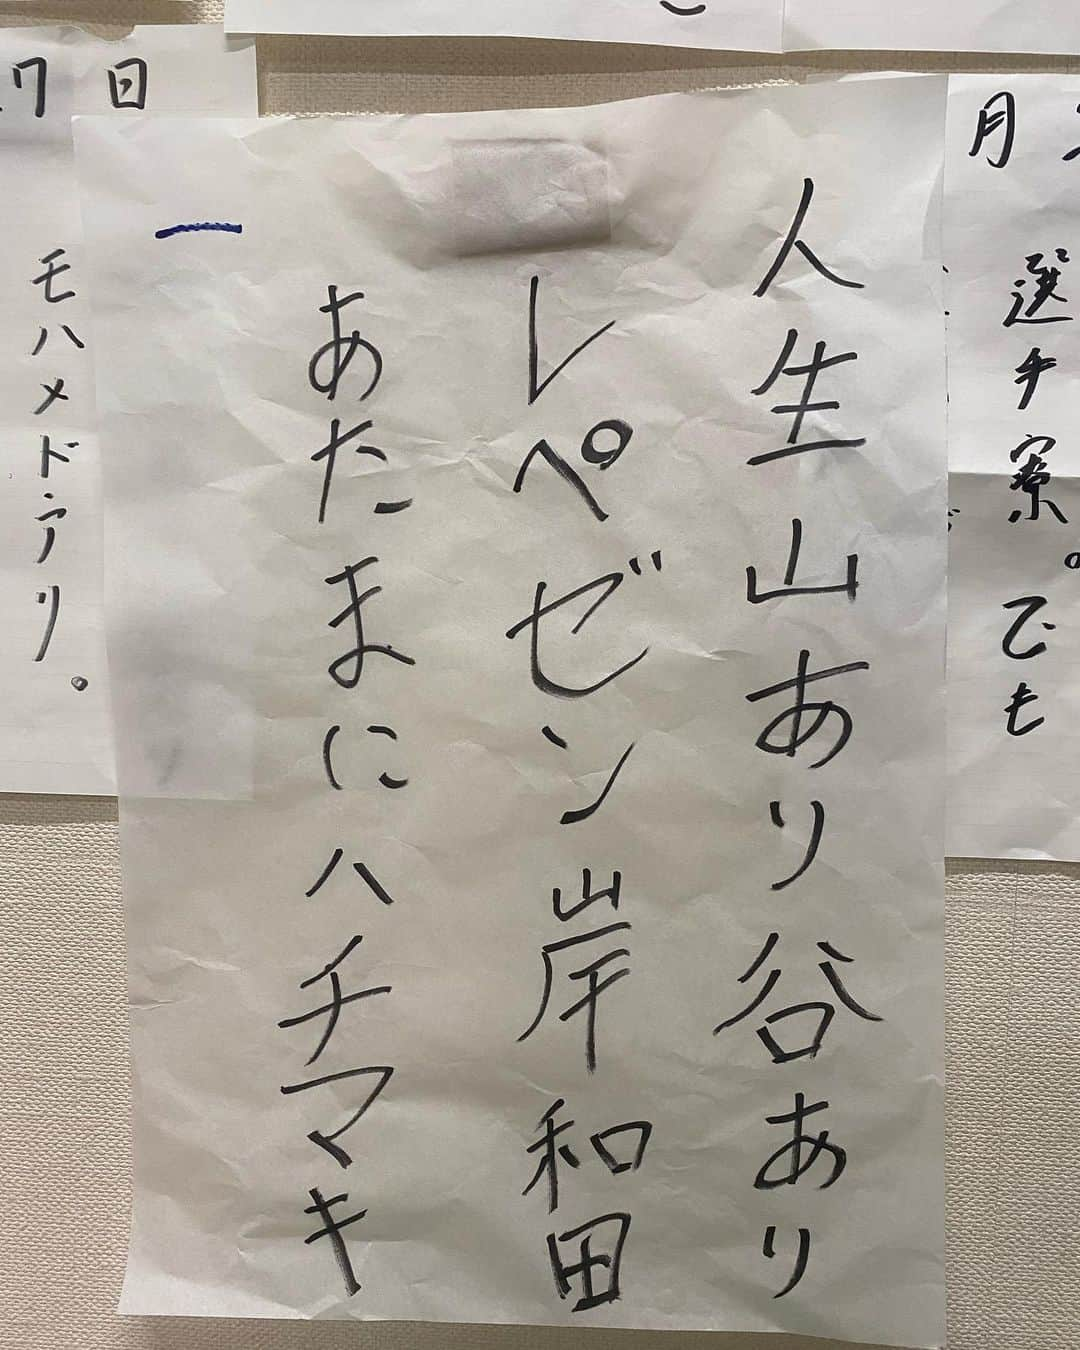 人生山あり谷あり
レペゼン岸和田
あたまにハチマキ
月
選手寮。でも
日
モハメド・アリ。